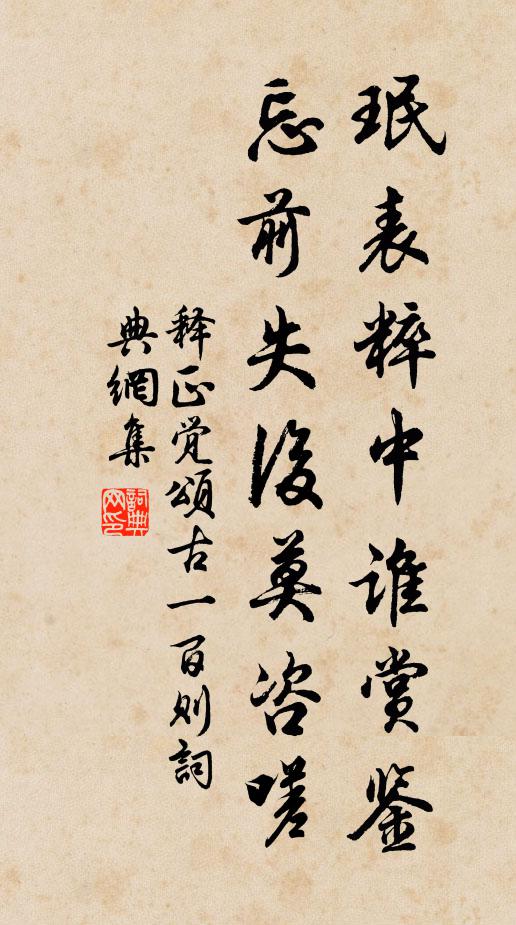 珉表粹中谁赏鉴
忘前失后莫咨嗟
释正觉颂古一百则词
典網集
詞典網印